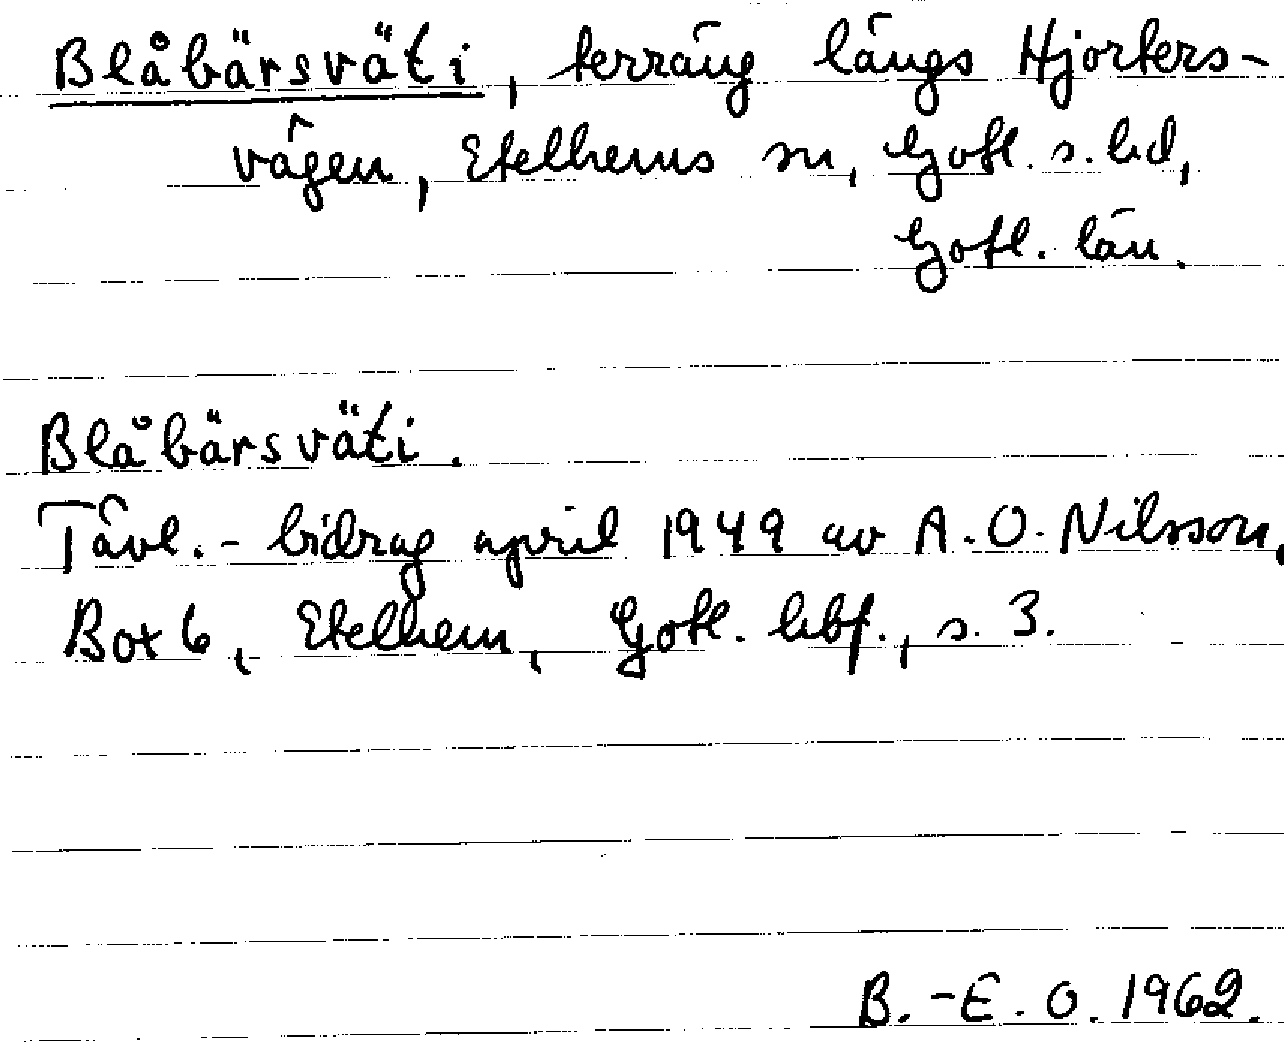 Blåbärsväti, terräng längs Hjorters-
vägen, Etelhems sn, Gotl. s. hd,
Gotl. län.
Blåbärsväti.
Tävl.- bidrag april 1949 av A. O. Nilsson,
Box 6, Etelhem, Gotl. hbf., s. 3.
B.-E. O. 1962.